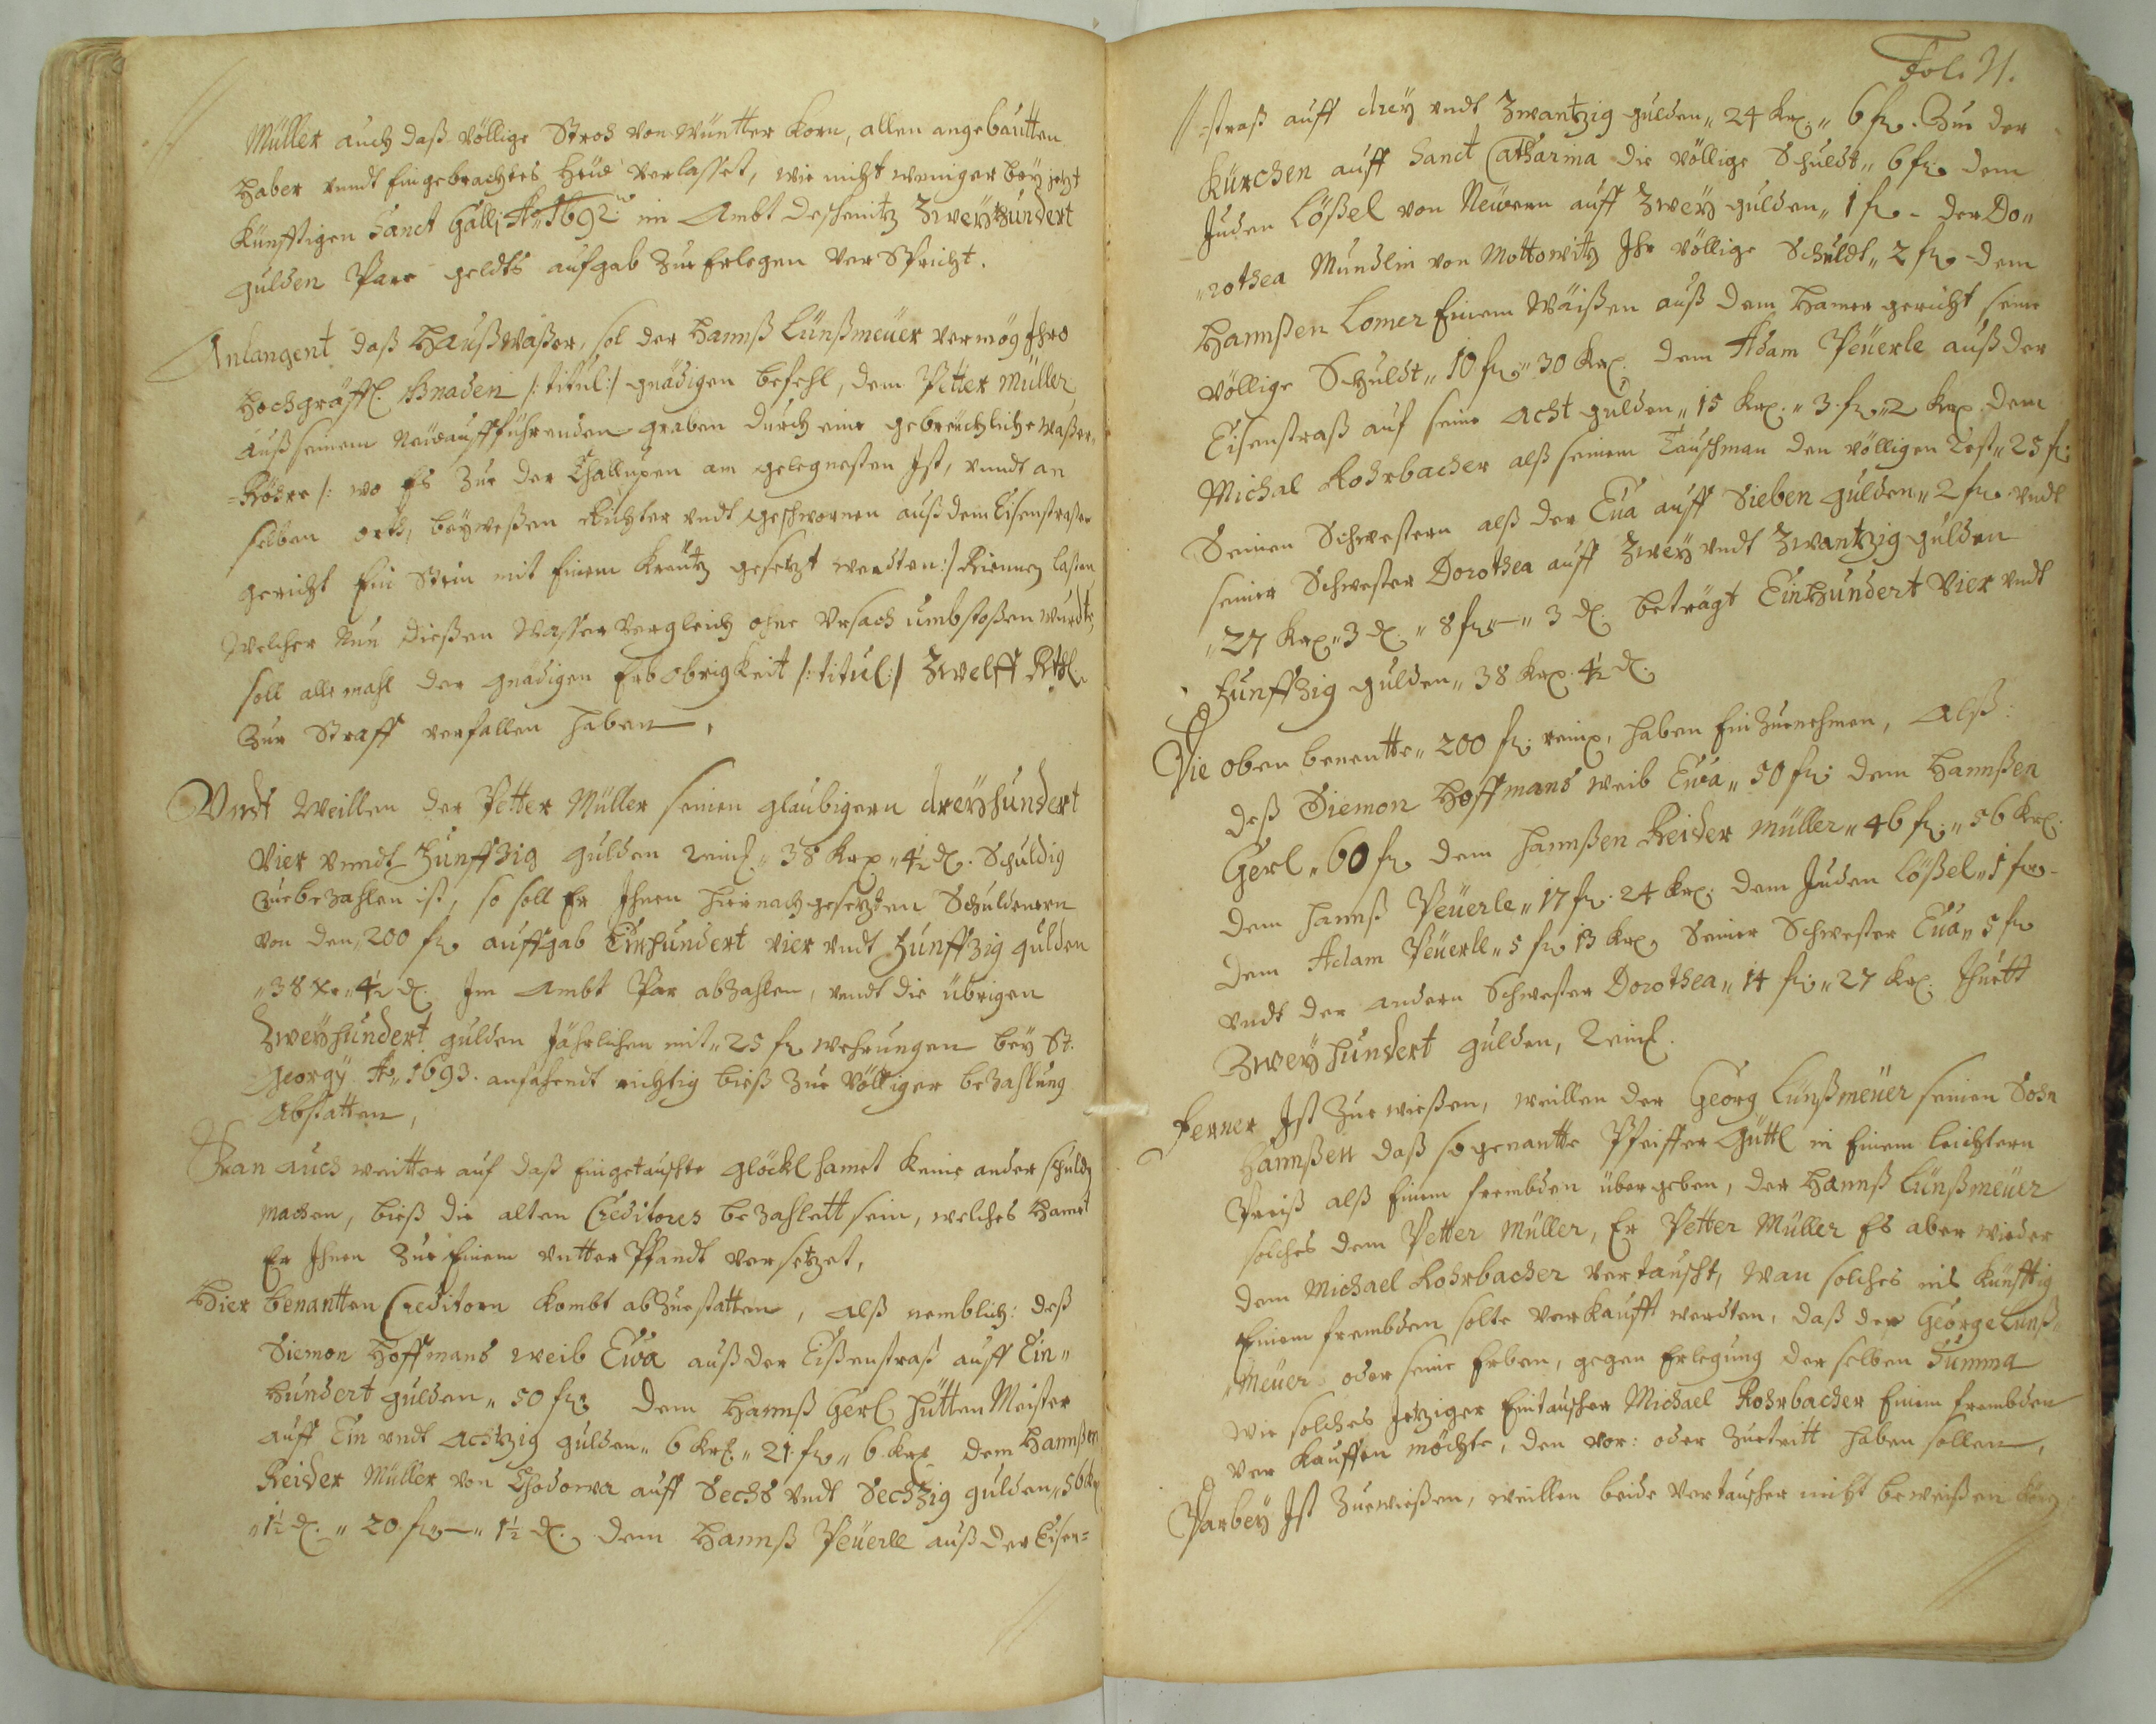 Müller auch daß völlige Stroh von Wüntter Korn, allen angebautten
Haber unndt Eingebrachtes Heüe verlasset, wie nicht weniger bey jetzt
Künfftigen Sanct Galli Aō 1692 im Ambt Deschenitz Zweyhundert
gulden Pare geldts aufgab Zur Erlegen verSpricht.
Anlangent daß Haußwaßer, sol der Hannß Lünßmeüer vermög Ihro
Hochgräffl. Gnaden /:titul:/ gnädigen befehl, dem Petter Müller
auß seinem Neü aufführenden graben durch eine gebreüchliche Waßer,
=Röhre /: wo Es Zur der Challupen am gelegnesten Ist, unndt an
selben orth, beyweßen Richter undt geschwornen auß dem Eisenstraßer
gericht Ein Stein mit Einem Kreütz gesetzt werdten:/ Rinnen laßen
Welcher Nun dießen Wasser Vergleich ohne Ursach umbstoßen wurdte,
soll alle mahl der gnädigen Erb Obrigkeit /:titul:/ Zwelff Rthl.
Zur Straff verfallen haben,
Undt Weillen der Petter Müller seinen glaubigern dreyhundert
Vier unndt Funffzig gulden reinl. 38 Krx „ 4½ d. Schuldig
Zuebezahlen ist, so soll Er Ihnen hiernachgesetzten Schuldenern
von den „ 200 fl. auffgab Einhundert vier undt Funffzig gulden
„ 38 Xr „ 4½ d. Im Ambt Par abzahlen, undt die übrigen
Zweyhundert gulden Jährlichen mit „ 25 fl. Wehrungen bey St.
Georgy Aō 1693. anfahendt richtig bieß Zur völliger bezahlung
Abstatten,
Kan auch weitter auf daß Eingetauschte Glöckl hamet Keine ander schuldt
machen, bieß die alten Creditores bezahlett sein, welches Hamet
Er Ihnen Zur Einem Untter Pfandt versetzet,
Hier benantten Creditorn Kombt abZuestatten, alß nemblich: deß
Siemon Hoffmans weib Eua auß der Eißenstraß auff Ein„
Hundert gulden „ 50 fl. dem Hannß Gerl Hütten Meister
auff Ein undt achtzig gulden „ 6 Krx „ 21 fl „ 6 Krx dem Hannßen
Reider Müller von Chodowa auff Sechs undt Sechzig gulden „ 56 Kr
„ 1½ d. „ 20 fl „ — „ 1½ d. dem Hannß Peüerle auß der Eisen=
Fol. 71.
=straß auff drey undt Zwantzig gulden „ 24 Krx. „ 6 fl. Zur der
Kürchen auff Sanct Catharina die völlige Schuldt „ 6 fl. dem
Juden Lößel von Neüern auff Zwey gulden „ 1 fl - der Do„
„rothea Mundlin von Mottowitz Ihr völlige Schuldt „ 2 fl - dem
Hannßen Lomer Einem Wäißen auß dem Hamer gericht seine
völlige Schuldt „ 10 fl „ 30 Krx. dem Adam Peüerle auß der
Eisenstraß auf seine acht gulden „ 15 Krx. „ 3 fl „ 2 Krx dem
Michal Rohrbacher alß seinem Tauschman den völligen Rest „ 25 fl:
Seinen Schwestern alß der Eua auff Sieben gulden „ 2 fl. undt
seiner Schwester Dorothea auff Zwey undt Zwantzig gulden
„ 27 Krx „ 3 d. „ 8 fl „ — „ 3 d. beträgt Einhundert Vier undt
Funffzig gulden „ 38 Krx. 4½ d.
Die oben benentte „ 200 fl. reinl, haben Ein Zurnehmen, alß:
deß Siemon Hoffmans weib Eua „ 50 fl: dem Hannßen
Gerl „ 60 fl dem hannßen Reider Müller „ 46 fl. „ 56 Krx.
dem hannß Peüerle „ 17 fl. 24 Krx: dem Juden Lößel „ 1 fl -
dem Adam Peüerle „ 5 fl 13 Krx Seiner Schwester Eua „ 5 fl
undt der andern Schwester Dorothea „ 14 fl: „ 27 Krx: thuett
Zweyhundert gulden, reinl.
Ferner Ist Zue wießen, weillen der Georg Lünßmeüer seinen Sohn
Hannßen daß so genantte Pfeiffer Güttl in Einem leichtern
Preiß alß Einem frembden übergeben, der Hannß Lünßmeüer
solches dem Petter Müller, Er Petter Müller Es aber wieder
dem Michael Rohrbacher vertauscht, Wan solches ins Künfftig
Einem frembden solte verkaufft werdten, daß der George Lünß„
„meüer oder seine Erben, gegen Erlegung derselben Summa
wie solches Jetziger Eintauscher Michael Rohrbacher Einem frembden
ver Kauffen möchte, den vor: oder Zuetritt haben sollen,
Darbey Ist Zuewießen, weillen beide vertauscher nicht beweißen kön„